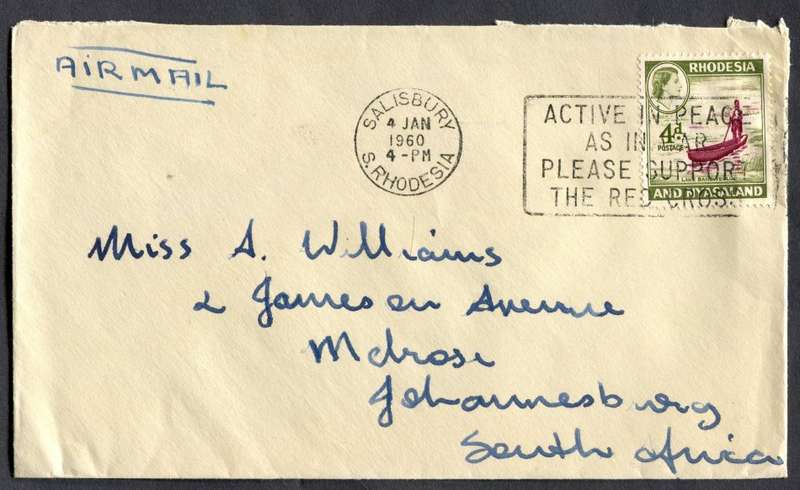 AIRMAIL
SALISBURY
4 JAN
1960
4-PM
S. RHODESIA
ACTIVE IN PEACE
AS IN WAR
PLEASE SUPPORT
THE RED CROSS
RHODESIA
4d.
POSTAGE
AND NYASALAND
Miss A. Williams
2 Jameson Avenue
Melrose
Johannesburg
South Africa